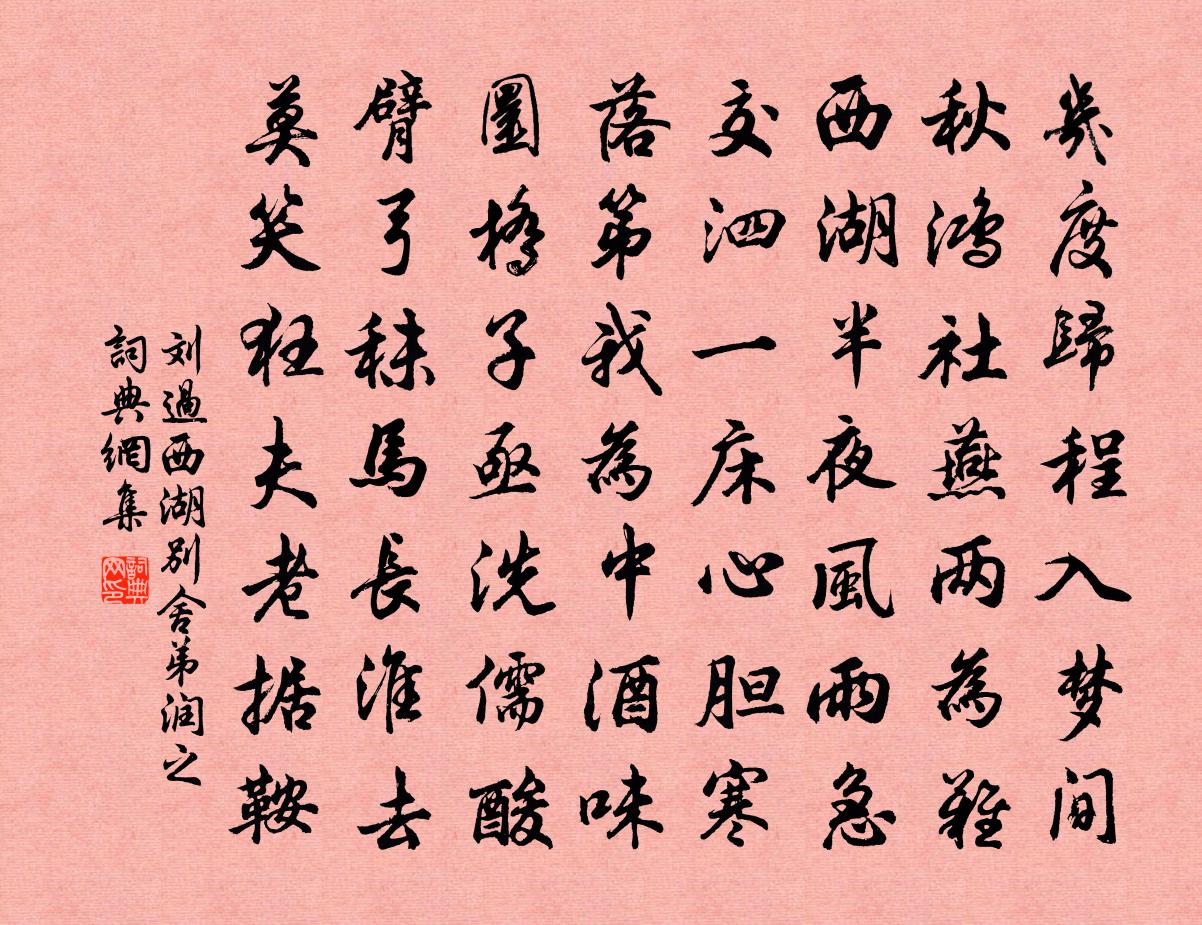 幾度歸程入梦间
秋鴻社燕两為難
西湖半夜風雨急
交泗一床心胆寒
落第我為中酒味
圜橋子亟洗儒酸
臂弓秣馬長淮去
莫笑狂夫老据鞍
刘過西湖别舍弟润之
詞典網集
詞典网印